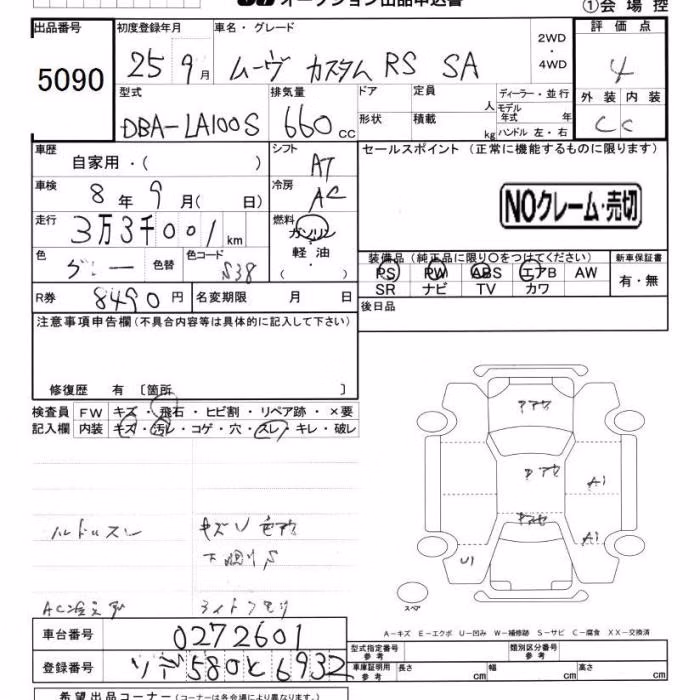 オークション出品申込書 ①会場控
出品番号 5090
初度登録年月 25年 9月
車名・グレード ムーヴ カスタム RS SA
2WD・4WD
評価点 4
型式 DBA-LA100S
排気量 660cc
ドア 形状
定員 人 積載 kg
ディーラー・並行
モデル年式 年
ハンドル 左・右
外装 内装
C C
車歴 自家用・( )
シフト AT
セールスポイント (正常に機能するものに限ります)
NOクレーム・売切
車検 8年 9月( 日)
冷房 AC
走行 3万3千001km
燃料 ガソリン 軽油 ( ・ )
色 グレー 色替
色コード S38
装備品 (純正品に限り○をつけてください)
PS PW ABS エアB AW
SR ナビ TV カワ
新車保証書 有・無
R券 8490円
名変期限 月 日
後日品
注意事項申告欄 (不具合内容等は具体的に記入して下さい)
修復歴 有 〔箇所 〕
検査員記入欄
FW キズ・飛石・ヒビ割・リペア跡・×要
内装 キズ・汚レ・コゲ・穴・スレ・キレ・破レ
ハンドルスレ キズU
下廻りS
A1
A1
U1
スペア
A-キズ E-エクボ U-凹み W-補修跡 S-サビ C-腐食 XX-交換済
車台番号 0272601
型式指定番号 参考
類別区分番号 参考
登録番号 580 と 6932
車庫証明用 参考 長さ cm 幅 cm 高さ cm
希望出品コーナー (コーナーは各会場により異なります。)